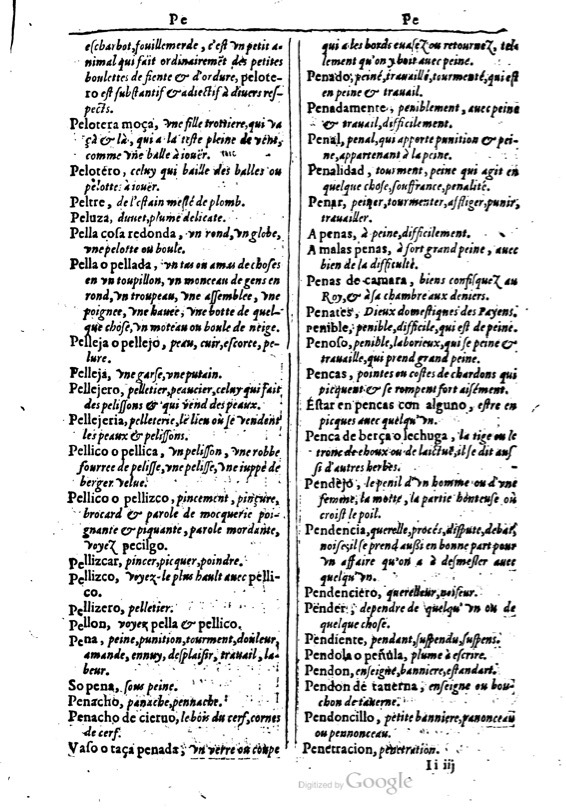 Pe
escharbot, fouillemerde, c'est vn petit a-
nimal qui fait ordinairemẽt des petites
boulettes de fiente & d'ordure, pelote-
ro est substantif & adiectif à diuers res-
pects.
Pelotera moça, vne fille trottiere, qui va
çà & là, qui a la teste pleine de vent,
comme vne balle à ioüer.
Pelotéro, celuy qui baille des balles ou
pelotte à ioüer.
Peltre, de l'estain meslé de plomb.
Peluza, duuet, plume delicate.
Pella cosa redonda, vn rond, vn globe,
vne pelotte ou boule.
Pella o pellada, vn tas ou amas de choses
en vn toupillon, vn monceau de gens en
rond, vn troupeau, vne assemblee, vne
poignee, vne hauee, vne botte de quel-
que chose, vn moteau ou boule de neige.
Pelleja o pellejo, peau, cuir, escorce, pe-
lure.
Pelleja, vne garse, vne putain.
Pellejero, pelletier, peaucier, celuy qui fait
des pelissons & qui vend des peaux.
Pellejeria, pelleterie, le lieu où se vendent
les peaux & pelissons.
Pellico o pellica, vn pelisson, vne robbe
fourree de pelisse, vne pelisse, vne iuppe de
berger velue.
Pellico o pellizco, pincement, pinçure,
brocard & parole de mocquerie poi-
gnante & piquante, parole mordante,
voyez pecilgo.
Pellizcar, pincer, picquer, poindre.
Pellizco, voyez-le plus hault auec pelli-
co.
Pellizero, pelletier.
Pellon, voyez pella & pellico.
Pena, peine, punition, tourment, douleur,
amande, ennuy, desplaisir, trauail, la-
beur.
So pena, sous peine.
Penacho, panache, pennache.
Penacho de cieruo, le bois du cerf, cornes
de cerf.
Vaso o taça penada, vn verre ou coupe
Pe
qui a les bords euasez ou retournez, tele
lement qu'on y boit auec peine.
Penado, peiné, trauaillé, tourmenté, qui est
en peine & trauail.
Penadamente, peniblement, auec peine
& trauail, difficilement.
Penal, penal, qui apporte punition & pei-
ne, appartenant à la peine.
Penalidad, tourment, peine qui agit en
quelque chose, souffrance, penalité.
Penar, peiner, tourmenter, affliger, punir,
trauailler.
A penas, à peine, difficilement.
A malas penas, à fort grand peine, auec
bien de la difficulté.
Penas de camara, biens confisquez au
Roy, & à sa chambre aux deniers.
Penates, Dieux domestiques des Payens.
Penible, penible, difficile, qui est de peine.
Penoso, penible, laborieux, qui se peine &
trauaille, qui prend grand peine.
Pencas, pointes ou costes de chardons qui
picquent & se rompent fort aisément.
Estar en pencas con alguno, estre en
picques auec quelqu'vn.
Penca de berça o lechuga, la tige ou le
tronc de choux ou de laictuë, il se dit aus
si d'autres herbes.
Pendejo, le penil d'vn homme ou d'vne
femme, la motte, la partie honteuse où
croist le poil.
Pendencia, querelle, procés, dispute, debat,
noise, il se prend aussi en bonne part pour
vn affaire qu'on a à desmesler auec
quelqu'vn.
Pendenciero, querelleur, noiseur.
Pender, dependre de quelqu'vn ou de
quelque chose.
Pendiente, pendant, suspendu, suspens.
Pendola o peñula, plume à escrire.
Pendon, enseigne, banniere, estandart.
Pendon de tauerna, enseigne ou bou-
chon de tauerne.
Pendoncillo, petite banniere, panonceau
ou pennonceau.
Penetracion, penetration.
Ii iij
Digitized by Google